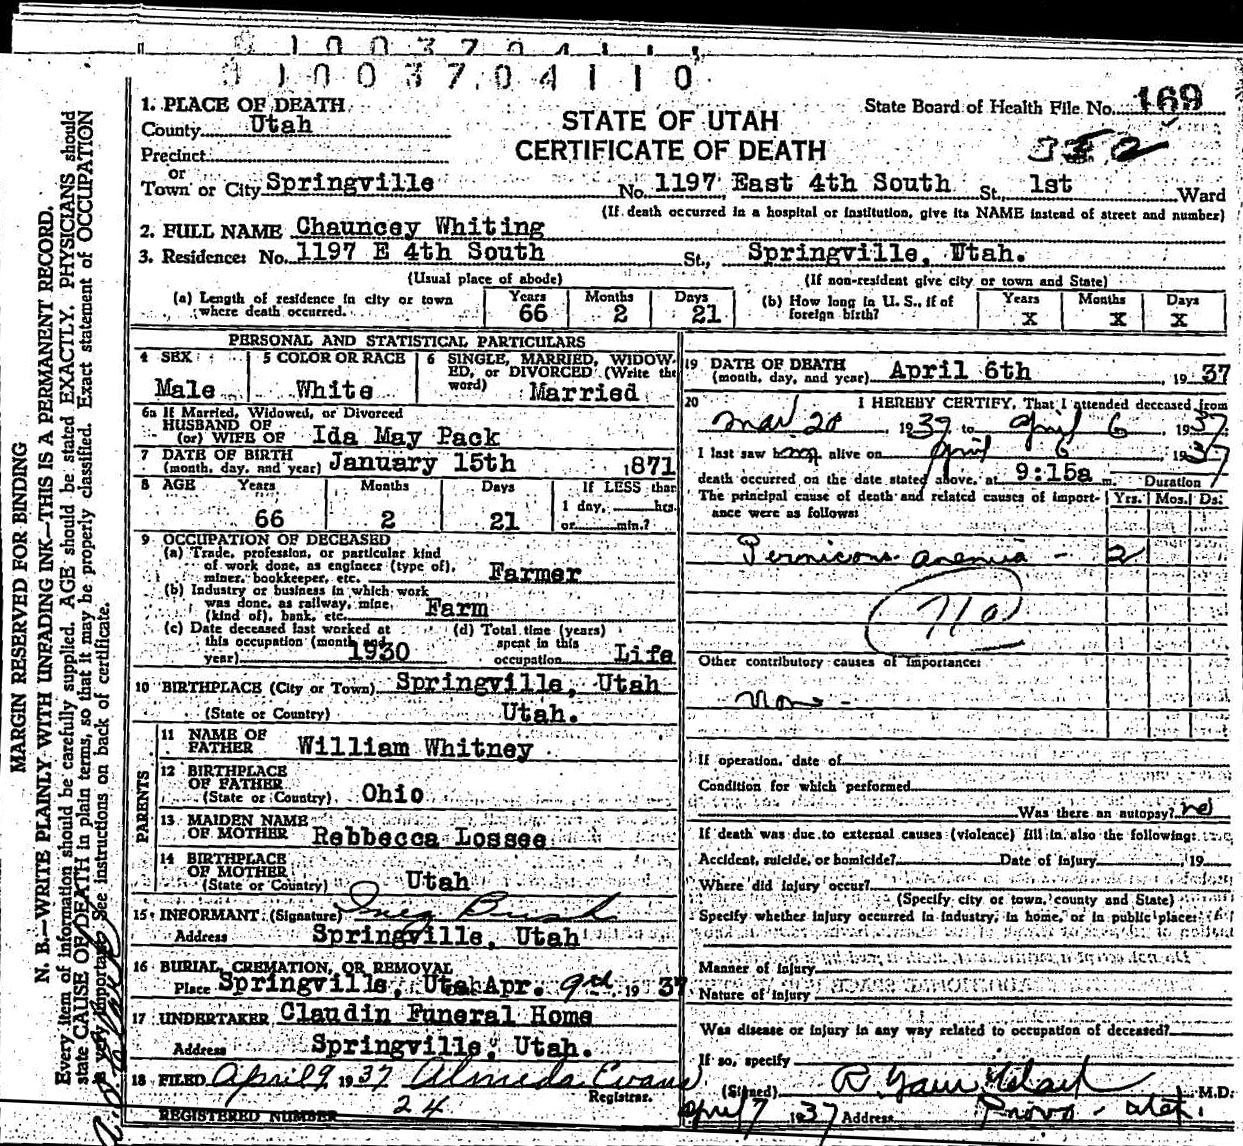 1003704110
1. PLACE OF DEATH
County Utah
Precinct
or
Town or City Springville
STATE OF UTAH
CERTIFICATE OF DEATH
State Board of Health File No. 169
No. 1197 East 4th South St., 1st Ward
(If death occurred in a hospital or institution, give its NAME instead of street and number)
2. FULL NAME Chauncey Whiting
3. Residence: No. 1197 E 4th South St., Springville, Utah.
(Usual place of abode) (If non-resident give city or town and State)
(a) Length of residence in city or town where death occurred. Years 66 Months 2 Days 21
(b) How long in U. S., if of foreign birth? Years X Months X Days X
PERSONAL AND STATISTICAL PARTICULARS
4 SEX Male
5 COLOR OR RACE White
6 SINGLE, MARRIED, WIDOWED, or DIVORCED (Write the word) Married
6a If Married, Widowed, or Divorced
HUSBAND OF
(or) WIFE OF Ida May Pack
7 DATE OF BIRTH
(month, day, and year) January 15th 1871
8 AGE Years 66 Months 2 Days 21 If LESS than 1 day, hrs. or min.?
9 OCCUPATION OF DECEASED
(a) Trade, profession, or particular kind
of work done, as engineer (type of),
miner, bookkeeper, etc. Farmer
(b) Industry or business in which work
was done, as railway, mine,
(kind of), bank, etc. Farm
(c) Date deceased last worked at
this occupation (month and
year) 1930
(d) Total time (years)
spent in this
occupation Life
10 BIRTHPLACE (City or Town) Springville, Utah
(State or Country) Utah.
PARENTS
11 NAME OF
FATHER William Whitney
12 BIRTHPLACE
OF FATHER
(State or Country) Ohio
13 MAIDEN NAME
OF MOTHER Rebbecca Lossee
14 BIRTHPLACE
OF MOTHER
(State or Country) Utah
15 INFORMANT (Signature) Inez Bush
Address Springville, Utah
16 BURIAL, CREMATION, OR REMOVAL
Place Springville, Utah Apr. 9th 1937
17 UNDERTAKER Claudin Funeral Home
Address Springville, Utah.
18 FILED April 9 1937 Almeda Evans
Registrar.
REGISTERED NUMBER 24
19 DATE OF DEATH
(month, day, and year) April 6th, 1937
20 I HEREBY CERTIFY, That I attended deceased from
Mar 20, 1937 to April 6, 1937
I last saw him alive on April 6 1937
death occurred on the date stated above, at 9:15a m. Duration
The principal cause of death and related causes of importance were as follows: Yrs. Mos. Ds.
Pernicous anemia - 2
71a
Other contributory causes of Importance:
None -
If operation, date of
Condition for which performed
Was there an autopsy? no
If death was due to external causes (violence) fill in also the following:
Accident, suicide, or homicide? Date of Injury 19
Where did injury occur?
(Specify city or town, county and State)
Specify whether injury occurred in industry, in home, or in public place:
Manner of Injury
Nature of Injury
Was disease or injury in any way related to occupation of deceased?
If so, specify
(Signed) M.D.
April 7 1937 Address Provo - Utah.
MARGIN RESERVED FOR BINDING
N. B.—WRITE PLAINLY WITH UNFADING INK—THIS IS A PERMANENT RECORD.
Every item of information should be carefully supplied. AGE should be stated EXACTLY. PHYSICIANS should
state CAUSE OF DEATH in plain terms, so that it may be properly classified. Exact statement of OCCUPATION
is very important. See instructions on back of certificate.